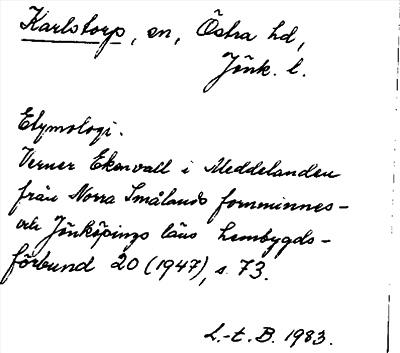 Karlstorp, sn, Östra hd,
Jönk. l.
Etymologi.
Verner Ekenvall i Meddelanden
från Norra Smålands fornminnes-
och Jönköpings läns hembygds-
förbund 20 (1947), s. 73.
L.-t. B. 1983.